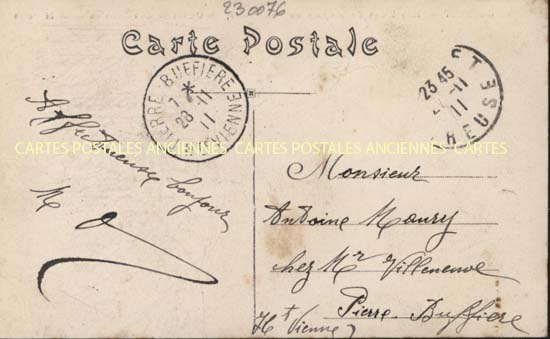 230076
Carte Postale
PIERRE-BUFFIERE
7 *
28 -11
11
HTE VIENNE
23 45
-11
11
REUSE
CARTES POSTALES ANCIENNES CARTES POSTALES ANCIENNES CARTES
bonjour
M
Monsieur
Antoine Maury
chez Mr Villeneuve
Pierre-Buffiere
(Hte Vienne)